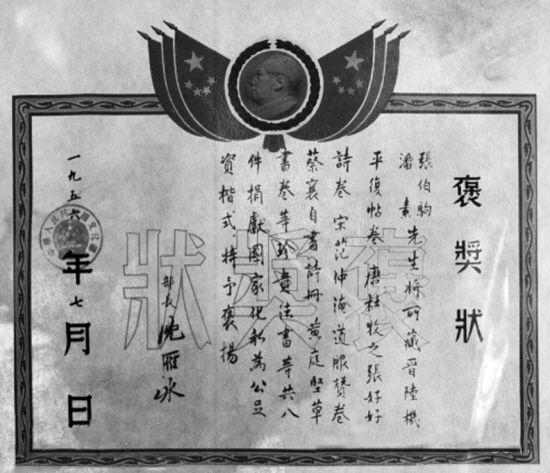 褒獎狀
張伯駒
潘素
先生將所藏晉陸機
平復帖卷唐杜牧之張好好
詩卷宋范仲淹道服贊卷
蔡襄自書詩册黃庭堅草
書卷等珍貴法書等共八
件捐獻國家化私為公足
資楷式特予褒揚
部長沈雁冰
一九五六年七月日
褒奖狀